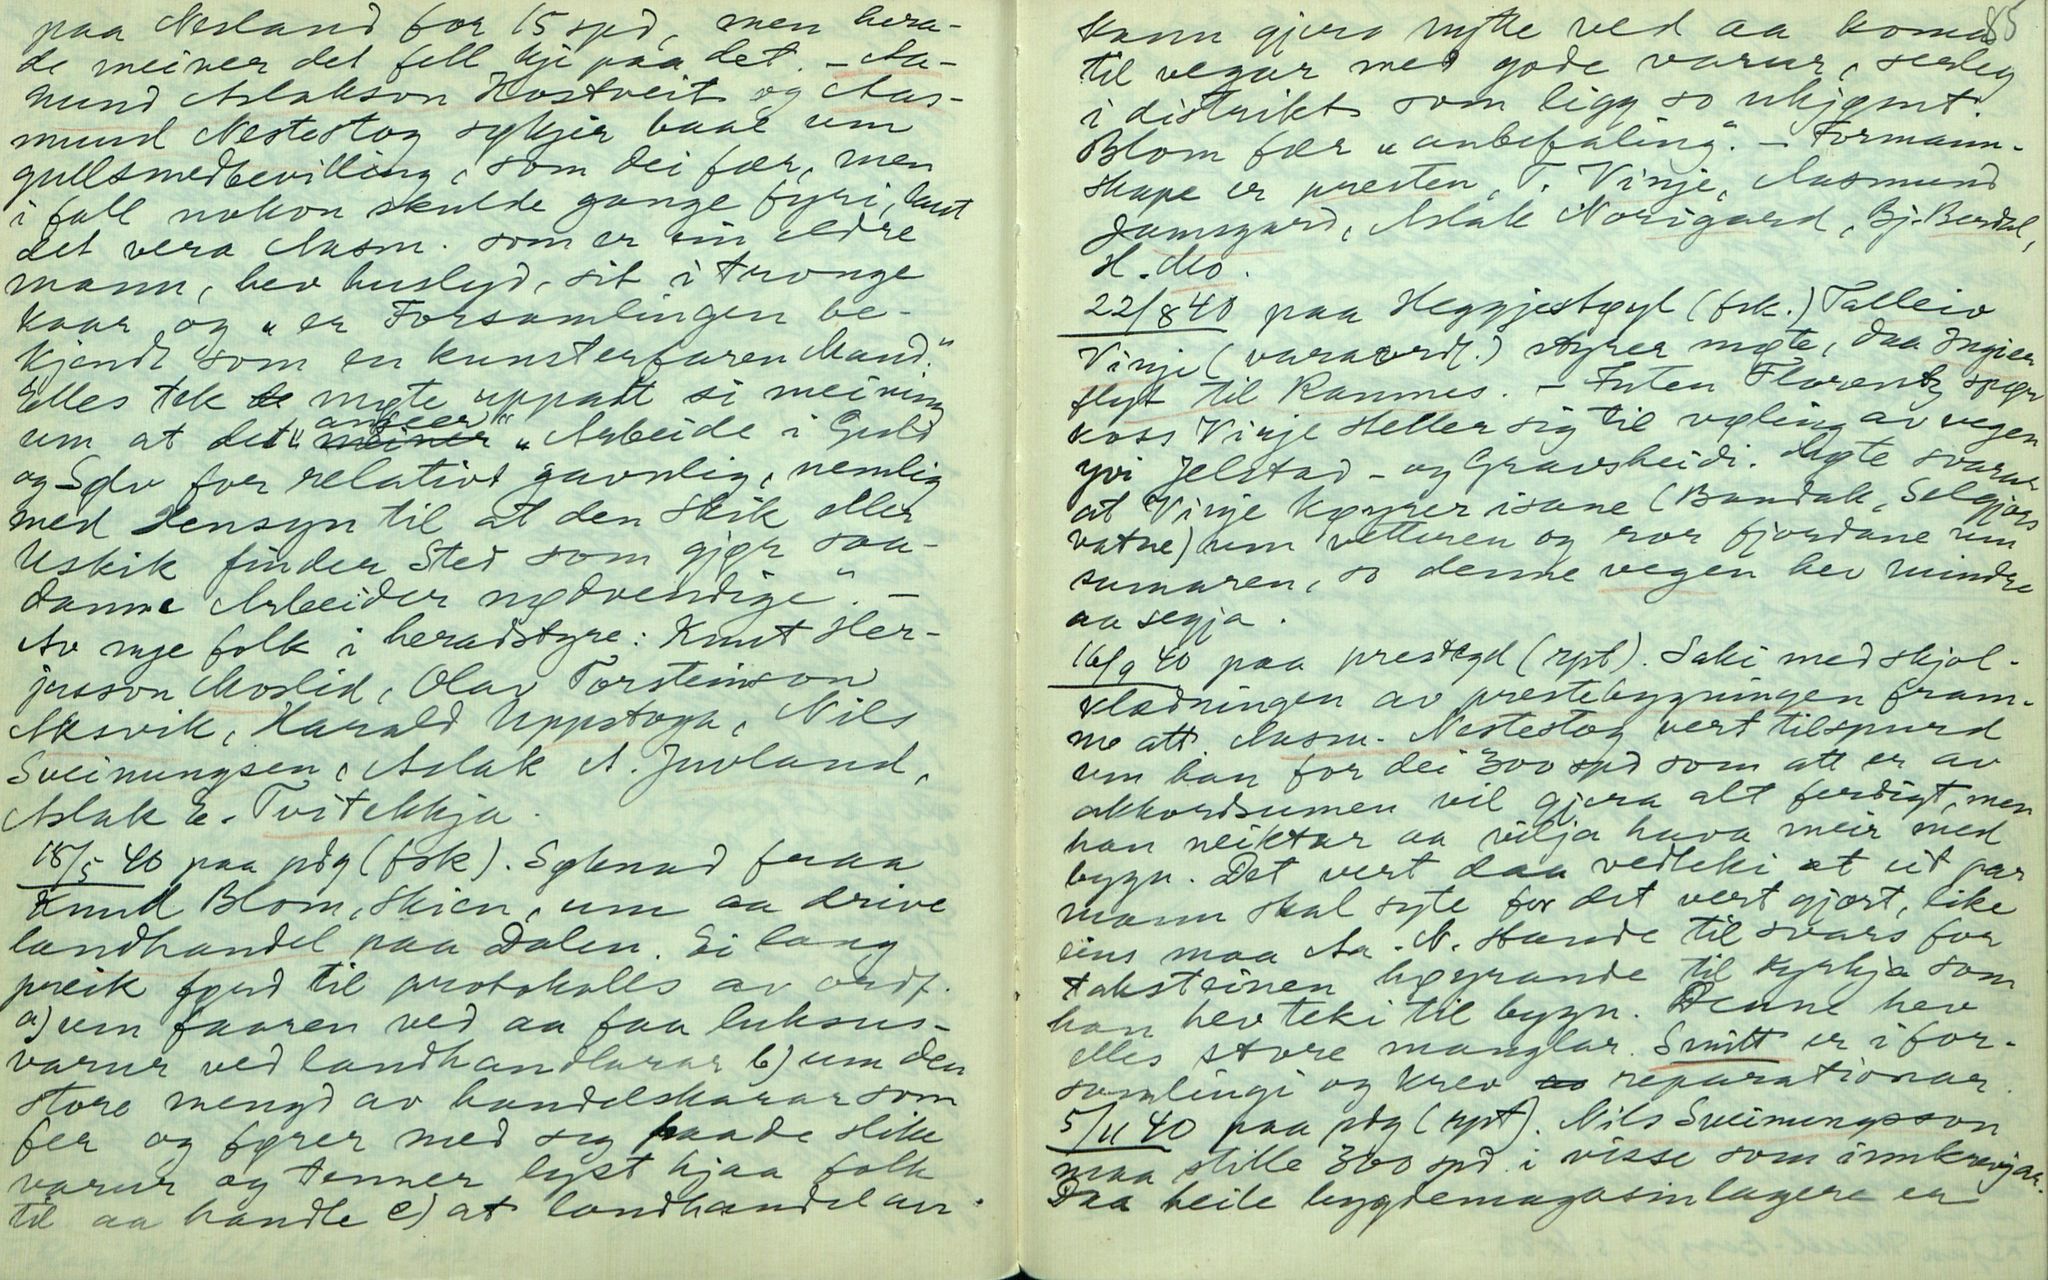 paa Nesland for 15 spd, men hera-
de meiner det fell kje paa det. - Aa-
mund Aslakson Kostveit og Aas-
mund Nestestog sykjer baae um
gullsmedbevilling, som dei fær, men
i fall nokon skulde gange fyri, laut
det vera Aasm. som er ein eldre
mann, hev huslyd, sit i tronge
kaar og "er Forsamlingen be-
kjendt som en kunsterfaren Mand."
Elles tek møte uppatt si meining
um at det "anseer" "Arbeide i Guld
og Sølv for relativt gavnlig, nemlig
med Hensyn til at den Skik eller
Uskik finder Sted som gjør saa-
danne Arbeider nødvendige". -
Av nye folk i heradstyre: Knut Her-
jusson Moslid, Olav Torsteinson
Aksvik, Harald Uppstoga, Nils
Sveinungsen, Aslak A. Juvland,
Aslak E. Tvitekkja.
18/5 40 paa pdg (fsk). Søknad fraa
Knud Blom, Skien, um aa drive
landhandel paa Dalen. Ei lang
preik førd til protokolls av ordf.
a) um faaren ved aa faa luksus-
varur ved landhandlarar b) um den
store mengd av handelskarar som
fer og fører med seg baade slike
varur og tenner lyst hjaa folk
til aa handle c) at landhandelen
85
kann gjera nytte ved aa koma
til vegar med gode varur, serleg
i distrikt som ligg so ukjømt.
Blom fær "anbefaling". - Formann-
skape er presten, T. Vinje, Aasmund
Jamsgard, Aslak Norigard, Bj. Berdal,
H. Mo.
22/8 40 paa Heggjestøyl (fsk.) Talleiv
Vinje (varaordf.) styrer møte, daa Ingier
flyt til Ramnes. - Futen Florentz spør
koss Vinje steller sig til vøling av vegen
yvi Jelstad- og Gravsheidi. Møte svarar
at Vinje køyrer isane (Bandak, Selgjors
vatne) um vetteren og ror fjordane um
sumaren, so denne vegen hev mindre
aa segja.
16/9 40 paa prestegd (rpt). Saki med skjol-
klædningen av prestebygningen fram-
me att. Aasm. Nestestog vert tilspurd
um han for dei 300 spd som att er av
akkordsumen vil gjera alt ferdigt, men
han neiktar aa vilja hava meir med
bygn. Det vert daa vedteki at eit par
mann skal syte for det vert gjort, like
eins maa Aa. N. stande til svars for
taksteinen høyrande til kyrkja som
han hev teki til bygn. Denne hev
elles store manglar. Smitt er i for-
samlingi og krev reparationar.
5/11 40 paa pdg (rpt). Nils Sveinungsson
maa stille 300 spd i visse som innkrevjar.
Daa heile bygdemagasinlagere er